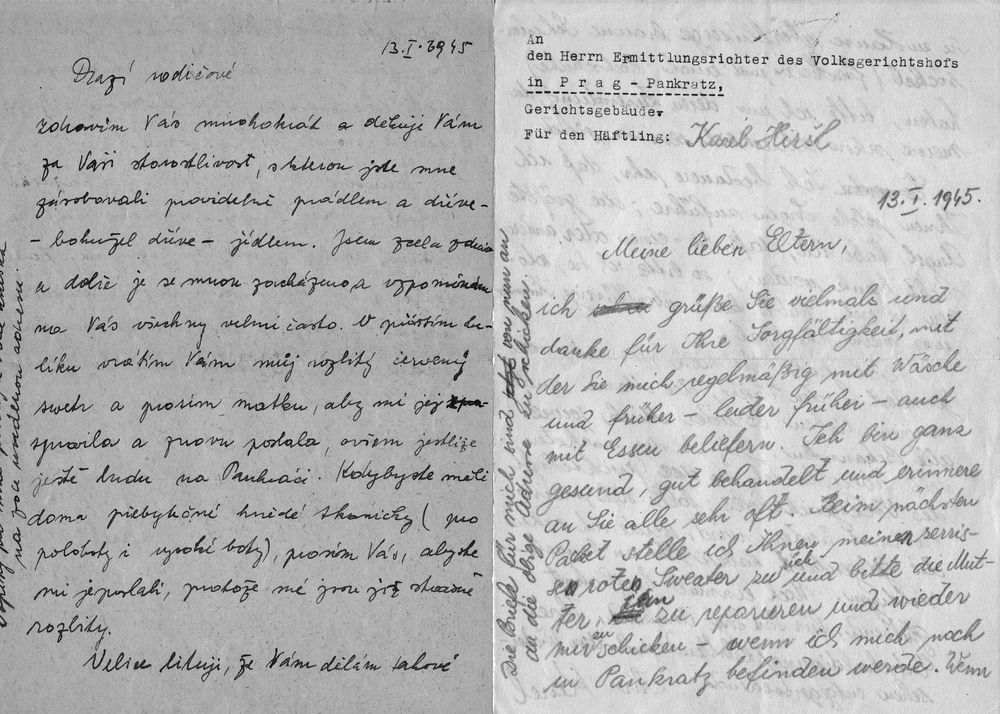 13.I.1945
Drazí rodičové
zdravím Vás mnohokrát a děkuji Vám
za Vaši starostlivost, s kterou jste mne
zásobovali pravidelně prádlem a dříve-
- bohužel dříve - jídlem. Jsem zcela zdráv
a dobře je se mnou zacházeno a vzpomínám
na Vás všechny velmi často. V příštím ba-
líku vrátím Vám můj rozbitý červený
svetr a prosím matku, aby mi jej
spravila a znovu poslala, ovšem jestliže
ještě budu na Pankráci. Kdybyste měli
doma přebytečné hnědé tkaničky (pro
poloboty i vysoké boty), prosím Vás, abyste
mi je poslali, protože mé jsou již strašně
rozbity.
Velice lituji, že Vám dělám takové
na zcela uvedenou adresu
An
den Herrn Ermittlungsrichter des Volksgerichtshofs
in Prag - Pankratz,
Gerichtsgebäude.
Für den Häftling: Karel Hiršl
13.I.1945.
Meine lieben Eltern,
ich grüße Sie vielmals und
danke für Ihre Sorgfältigkeit, mit
der Sie mich regelmäßig mit Wäsche
und früher - leider früher - auch
mit Essen beliefern. Ich bin ganz
gesund, gut behandelt und erinnere
an Sie alle sehr oft. Beim nächsten
Packet stelle ich Ihnen meinen zerris-
senen roten Sweater zurück und bitte die Mut-
ter, ihn zu reparieren und wieder
mir zu schicken - wenn ich mich noch
in Pankratz befinden werde. Wenn
Die Briefe für mich sind von nun an
an die obige Adresse zu schicken.